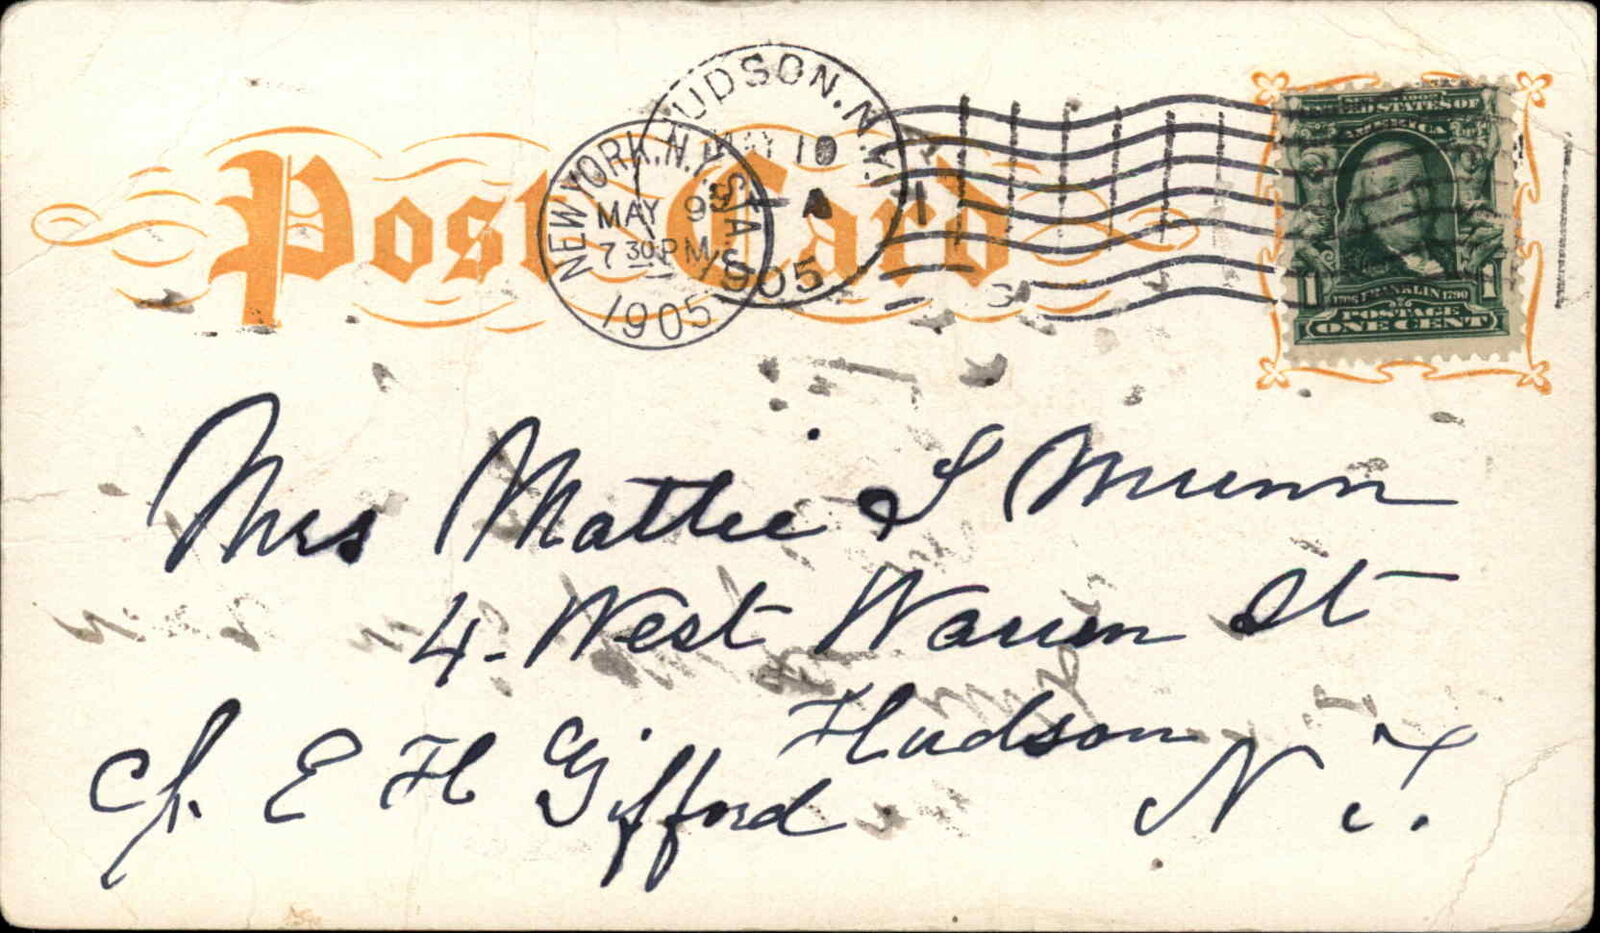 Post Card
HUDSON, N.Y.
MAY 10
A
1905
NEW YORK, N.Y. STA.
MAY 9
7 30 PM
1905
1
UNITED STATES OF
AMERICA
1706 FRANKLIN 1790
1 1
POSTAGE
ONE CENT
Mrs Mattie S Munn
4 - West Warren St
Hudson
c/o. E H Gifford N.Y.